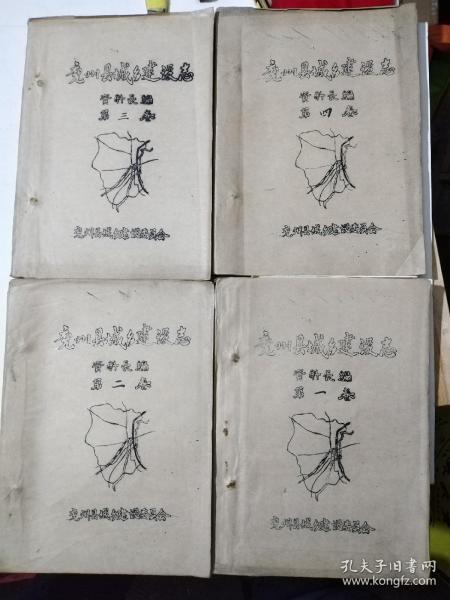 兖州县城乡建设志
资料长编
第三卷
兖州县城乡建设委员会
兖州县城乡建设志
资料长编
第四卷
兖州县城乡建设委员会
兖州县城乡建设志
资料长编
第二卷
兖州县城乡建设委员会
兖州县城乡建设志
资料长编
第一卷
兖州县城乡建设委员会
孔夫子旧书网
www.kongfz.com